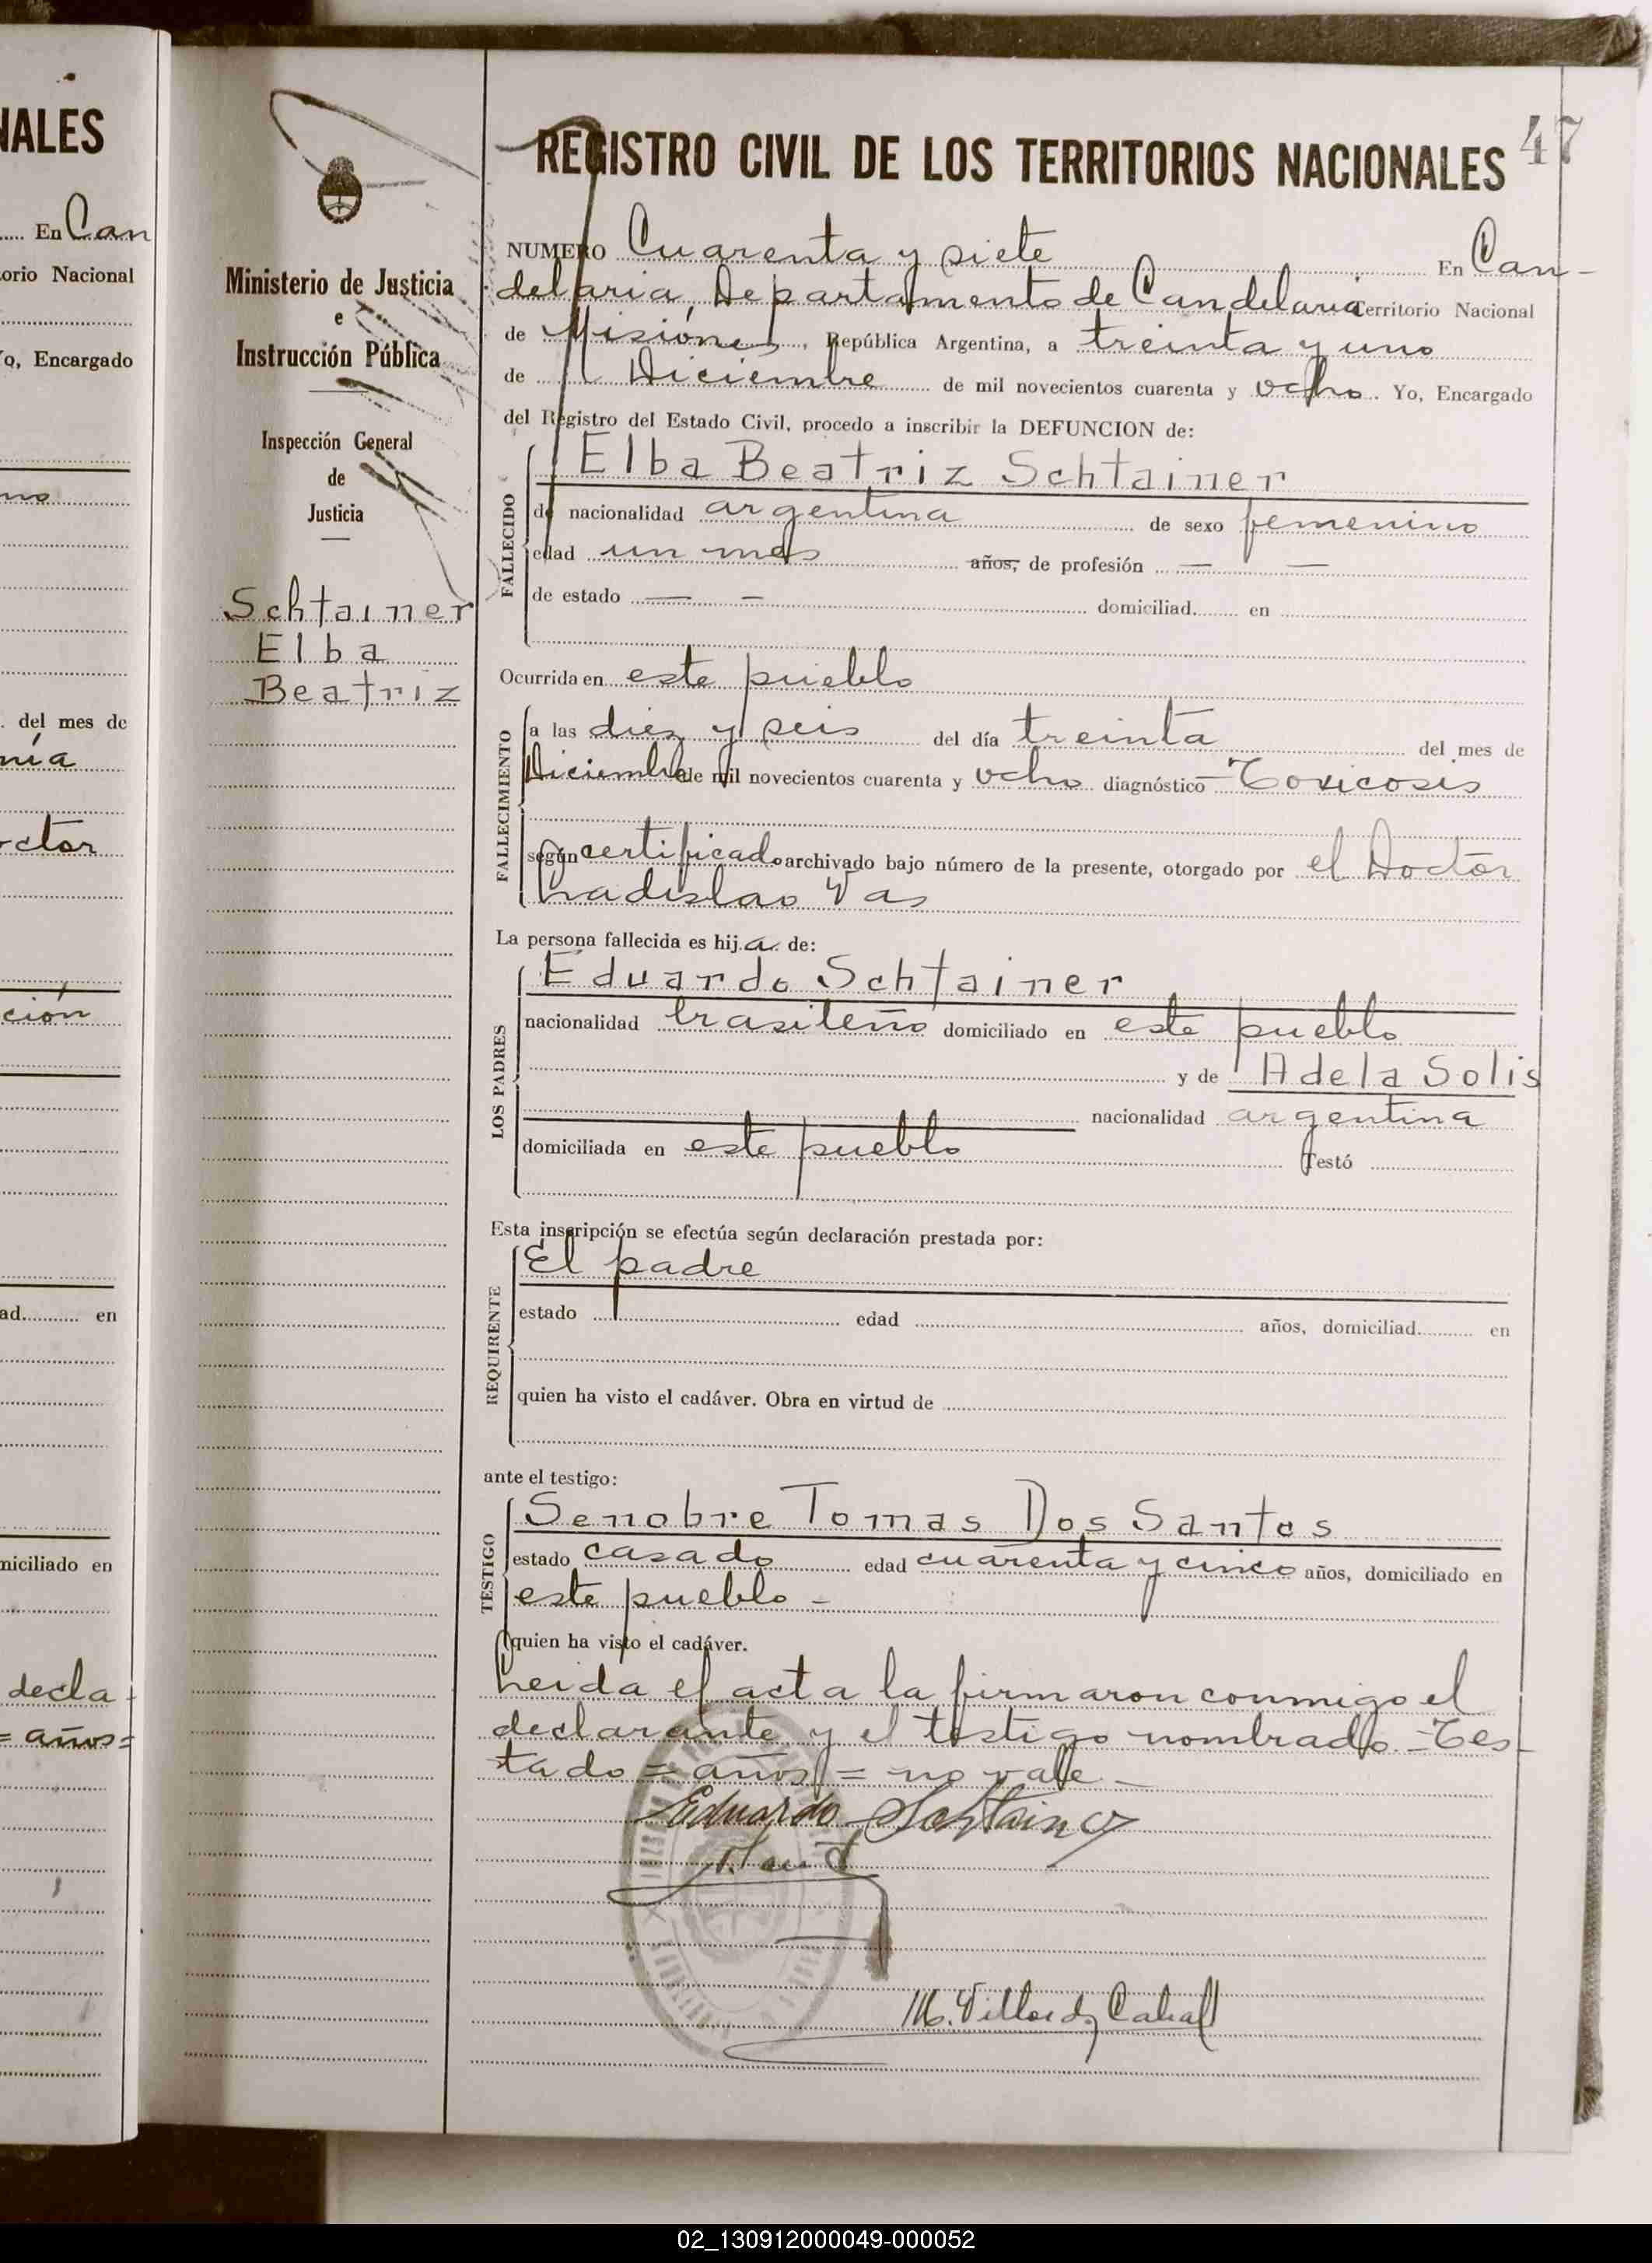 NALES
En Can
orio Nacional
o, Encargado
no
del mes de
nía
ctor
ción
ad. en
niciliado en
decla
= años =
Ministerio de Justicia
e
Instrucción Pública
Inspección General
de
Justicia
Schtainer
Elba
Beatriz
47
REGISTRO CIVIL DE LOS TERRITORIOS NACIONALES
NUMERO Cuarenta y siete En Can-
delaria Departamento de Candelaria Territorio Nacional
de Misiones, República Argentina, a treinta y uno
de Diciembre de mil novecientos cuarenta y ocho. Yo, Encargado
del Registro del Estado Civil, procedo a inscribir la DEFUNCION de:
FALLECIDO
Elba Beatriz Schtainer
de nacionalidad argentina de sexo femenino
edad un mes años, de profesión — —
de estado — — domiciliad en
Ocurrida en este pueblo
FALLECIMIENTO
a las diez y seis del día treinta del mes de
Diciembre de mil novecientos cuarenta y ocho diagnóstico Toxicosis
según certificado archivado bajo número de la presente, otorgado por el Doctor
Ladislao Vas
La persona fallecida es hija de:
LOS PADRES
Eduardo Schtainer
nacionalidad brasileño domiciliado en este pueblo
y de Adela Solis
nacionalidad argentina
domiciliada en este pueblo Testó
Esta inscripción se efectúa según declaración prestada por:
REQUIRENTE
El padre
estado edad años, domiciliad en
quien ha visto el cadáver. Obra en virtud de
ante el testigo:
TESTIGO
Senobre Tomas Dos Santos
estado casado edad cuarenta y cinco años, domiciliado en
este pueblo -
quien ha visto el cadáver.
Leida el acta la firmaron conmigo el
declarante y el testigo nombrado. = Tes-
tado = años = no vale -
Eduardo Schtainer
02_130912000049-000052